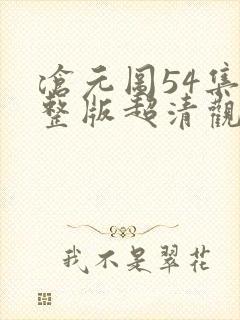 滄元圖54集
整版超清觀
我不是翠花